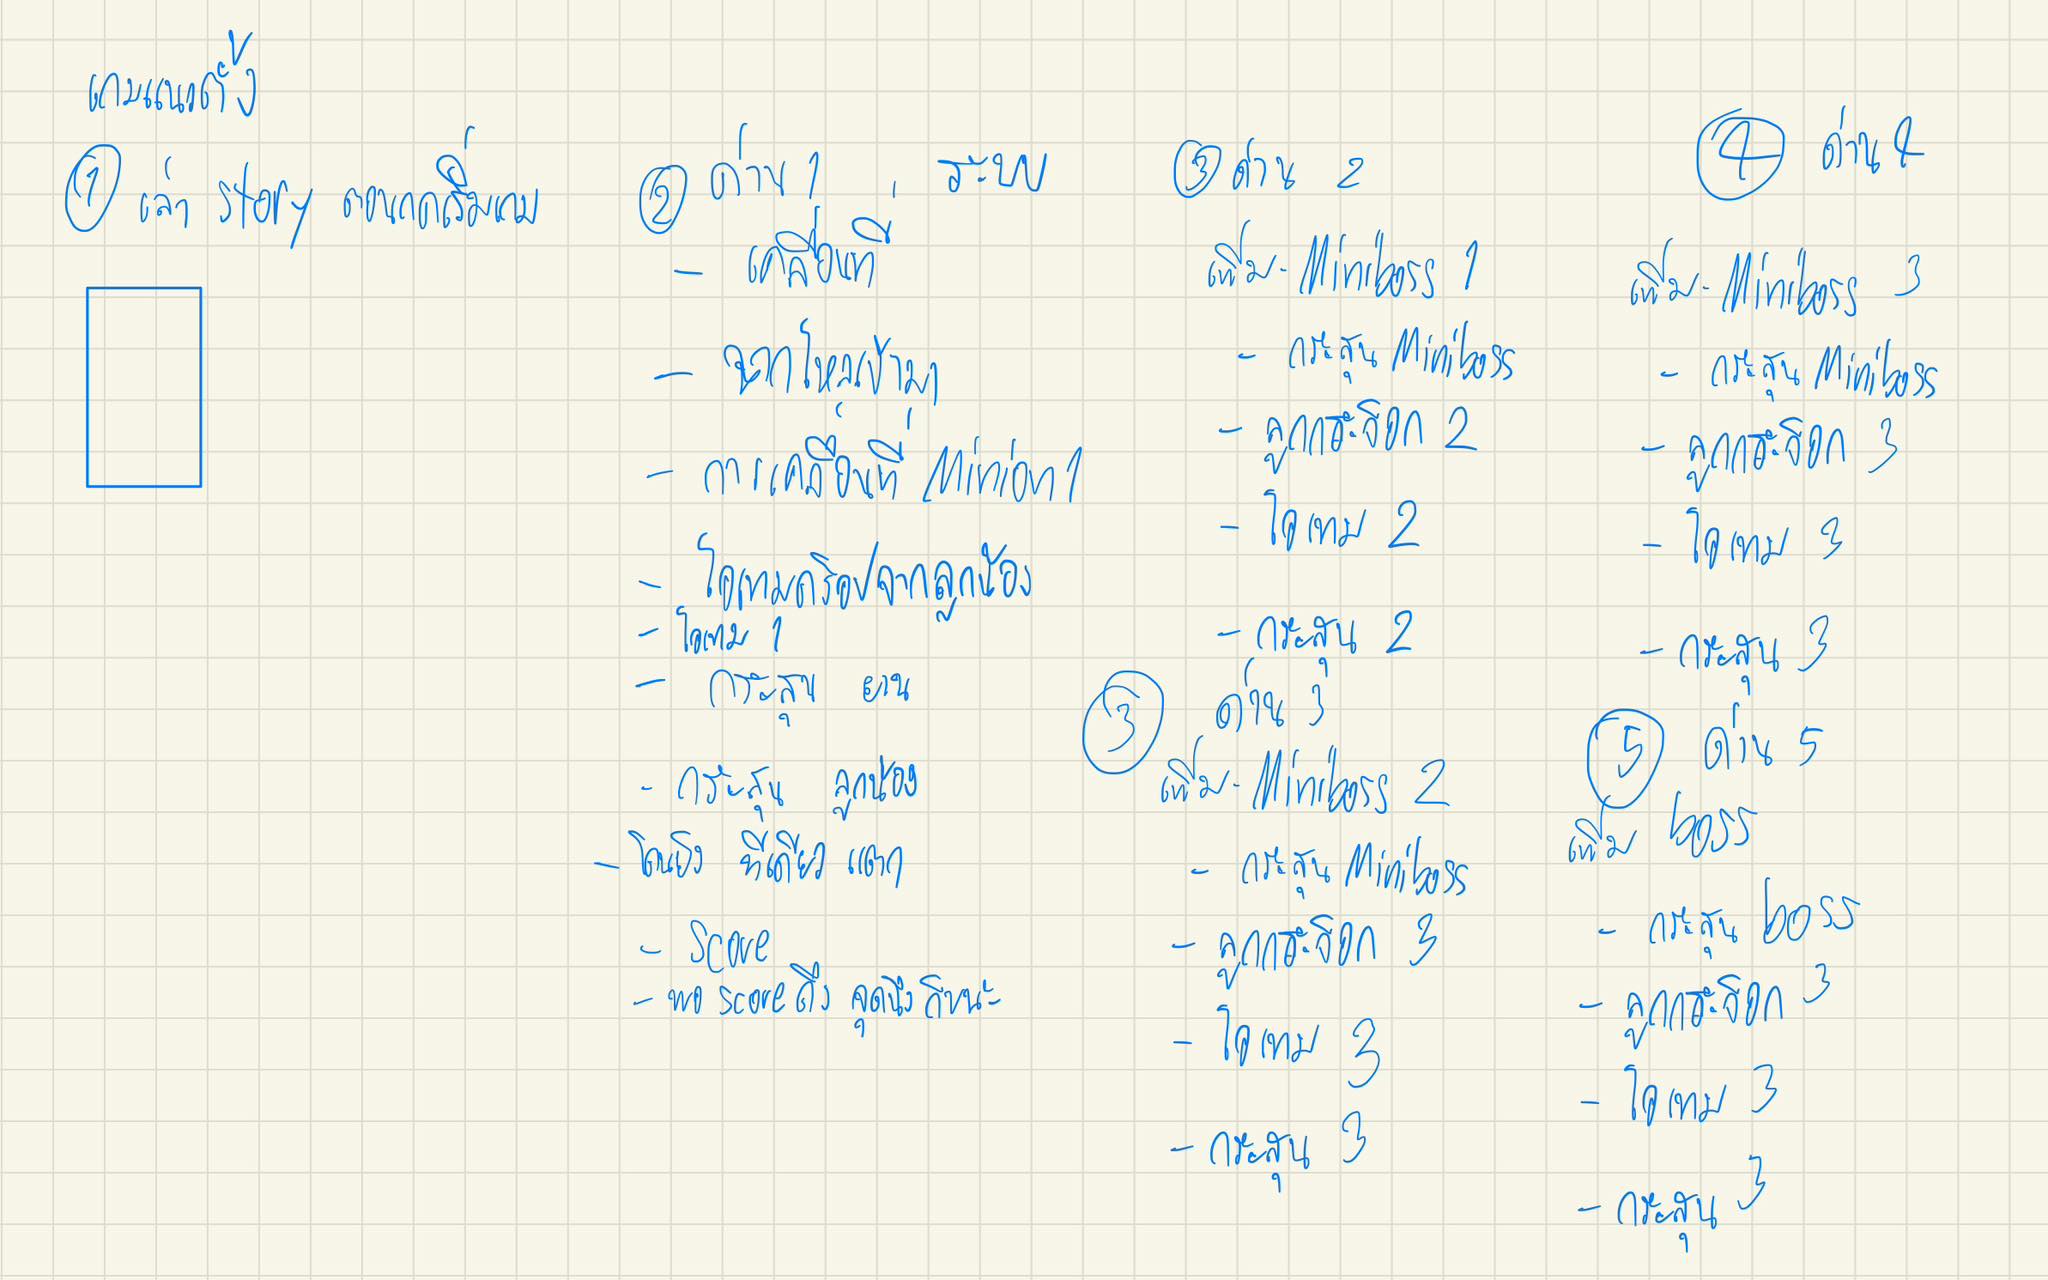 เกมแนวตั้ง
① เล่า story ตอนกดเริ่มเกม
② ด่าน 1 , ระบบ
- เคลื่อนที่
- ฉากไหลเข้ามา
- การเคลื่อนที่ Minion 1
- ไอเทมดรอปจากลูกน้อง
- ไอเทม 1
- กระสุน ยาน
- กระสุน ลูกน้อง
- โดนยิง ทีเดียว แตก
- Score
- พอ score ถึง จุดนึงถึงชนะ
③ ด่าน 2
เพิ่ม - Miniboss 1
- กระสุน Miniboss
- ลูกกระจ๊อก 2
- ไอเทม 2
- กระสุน 2
③ ด่าน 3
เพิ่ม - Miniboss 2
- กระสุน Miniboss
- ลูกกระจ๊อก 3
- ไอเทม 3
- กระสุน 3
④ ด่าน 4
เพิ่ม - Miniboss 3
- กระสุน Miniboss
- ลูกกระจ๊อก 3
- ไอเทม 3
- กระสุน 3
⑤ ด่าน 5
เพิ่ม boss
- กระสุน boss
- ลูกกระจ๊อก 3
- ไอเทม 3
- กระสุน 3